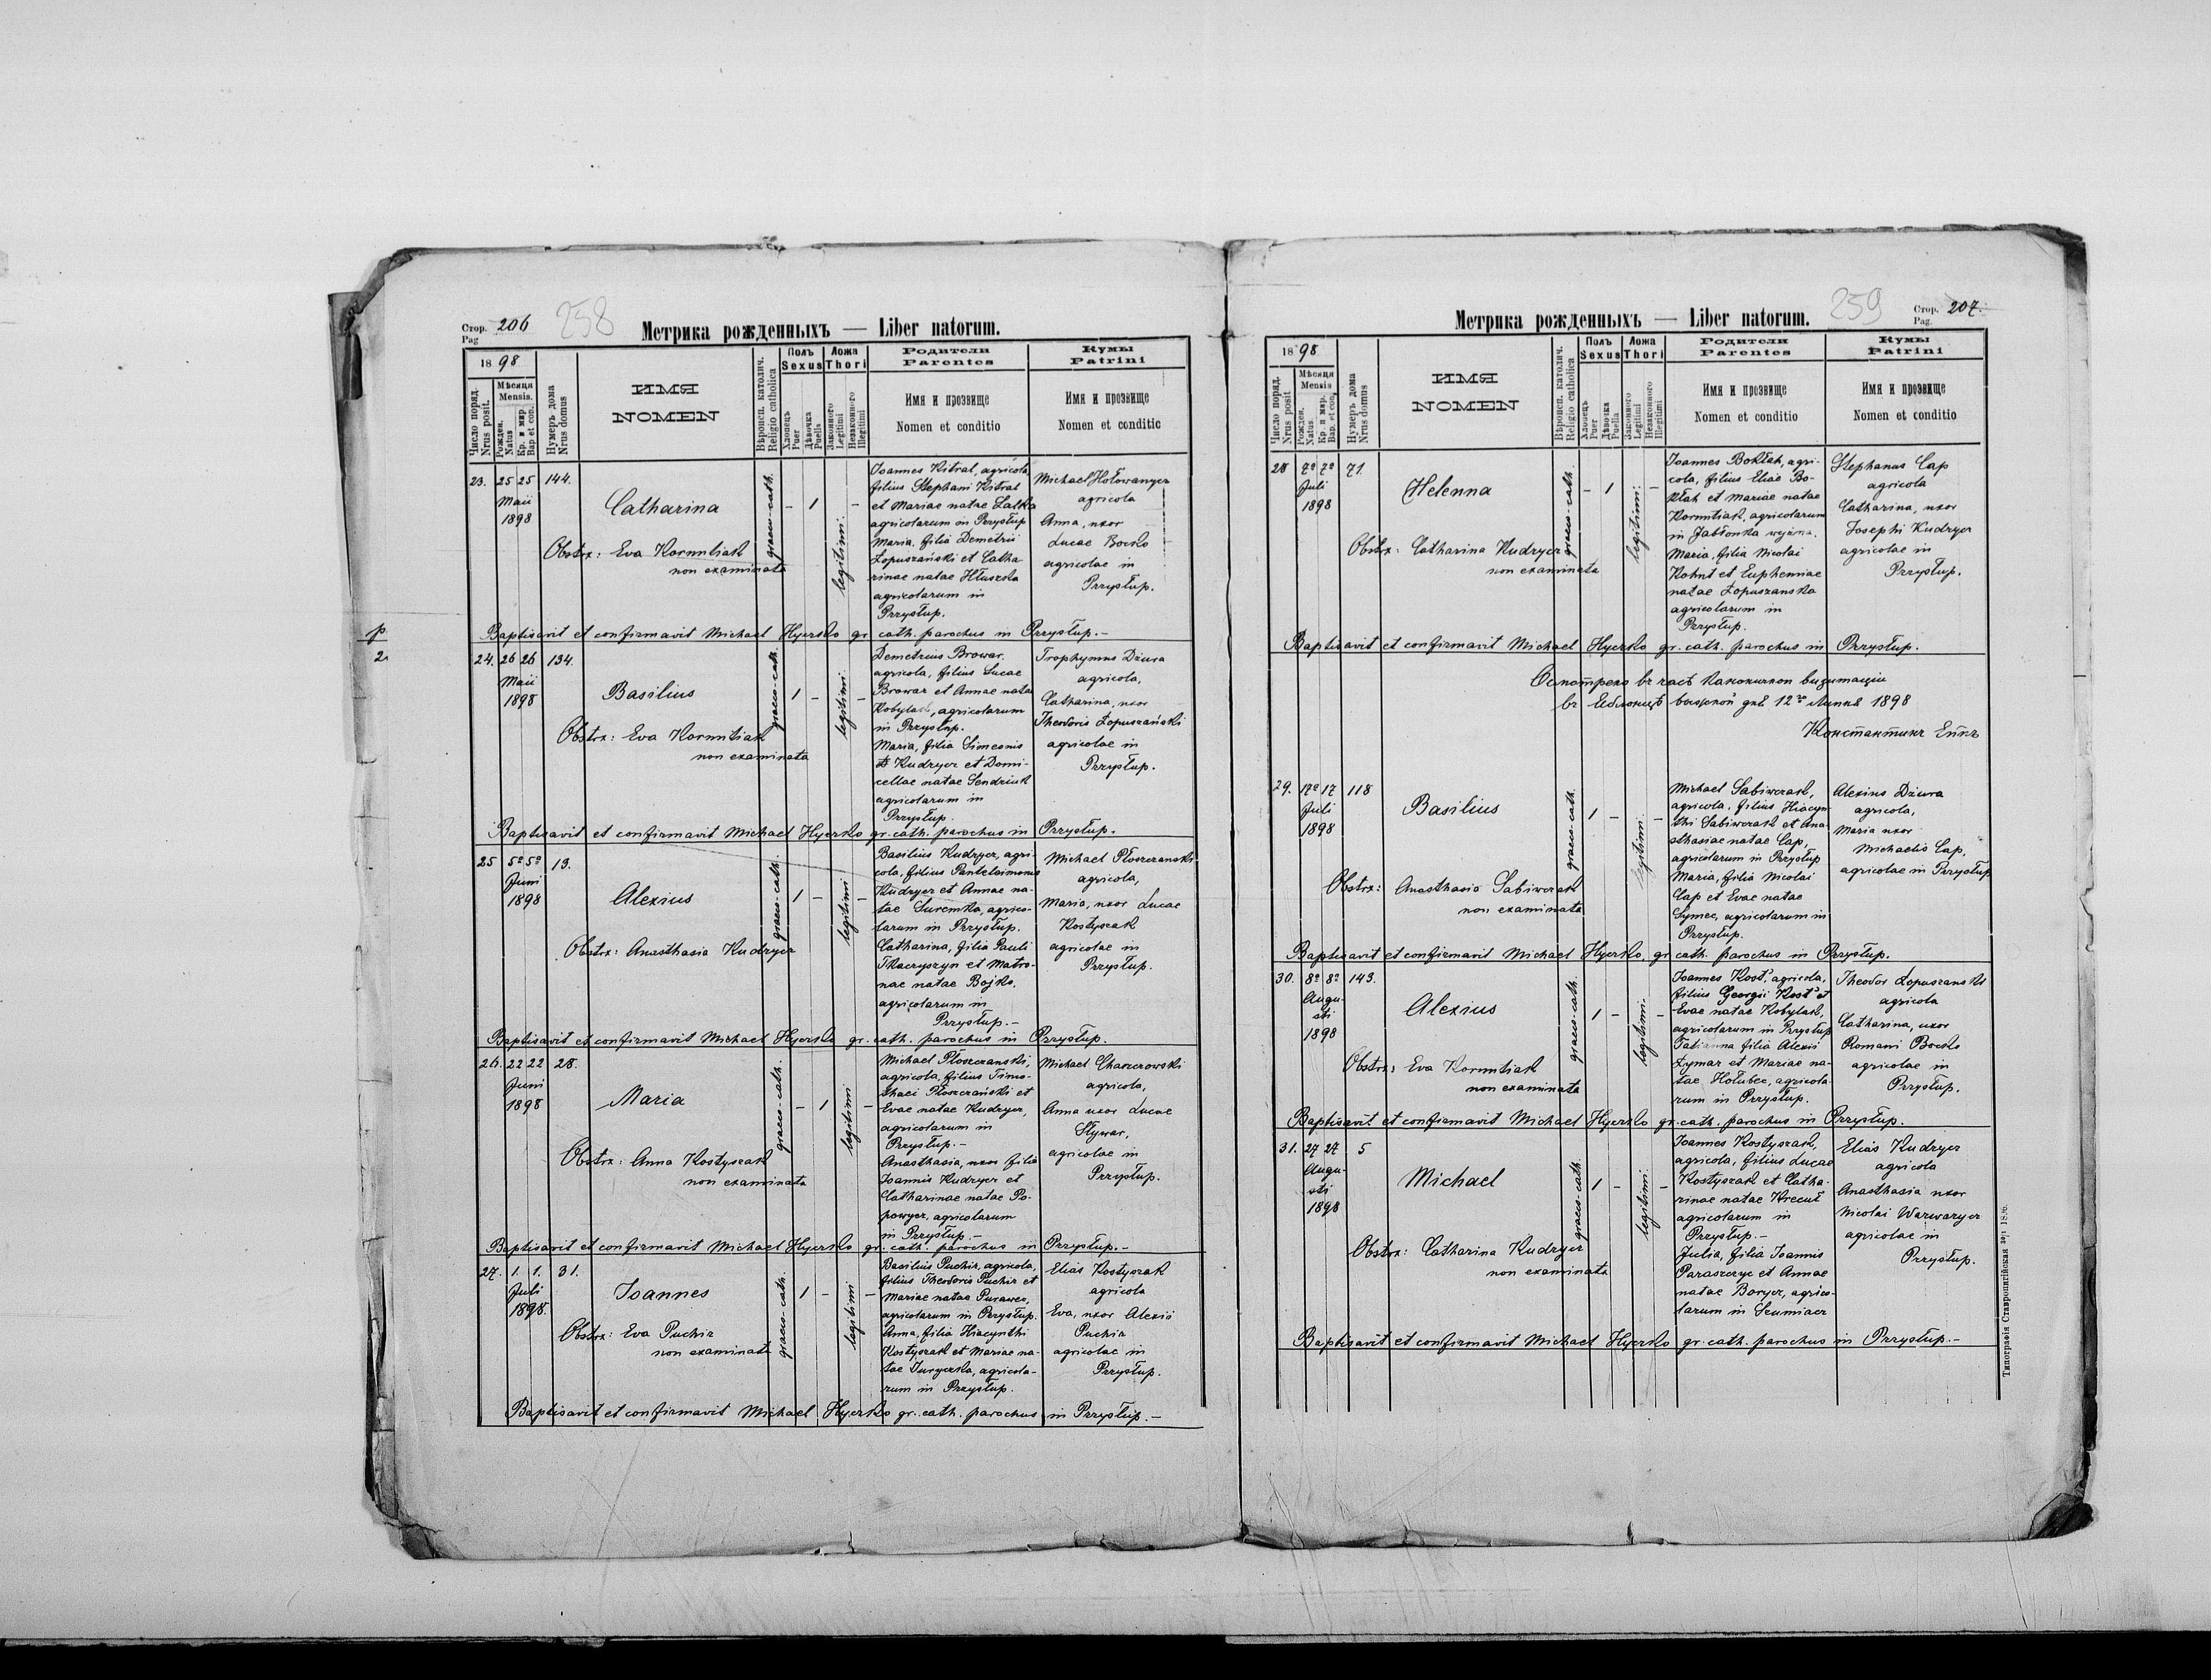 Стор. 206
Pag
258
Метрика рожденныхъ — Liber natorum.
1898
Число поряд.
Nrus posit.
Мѣсяця
Mensis.
Рожден.
Natus
Кр. и мир
Bap et con.
Нумеръ дома
Nrus domus
ИМЯ
NOMEN
Вѣроисп. католич.
Religio catholica
Полъ
Sexus
Хлопець
Puer
Дѣвочка
Puella
Ложа
Thori
Законного
Legitimi
Незаконного
Illegitimi
Родители
Parentes
Имя и прозвище
Nomen et conditio
Кумы
Patrini
Имя и прозвище
Nomen et conditio
23. 25 25 144.
Maii
1898
Catharina
Obstrx: Eva Kormitiak
non examinata
graeco-cath.
- 1
legitimi.
-
Joannes Kitral, agricola,
filius Stephani Kitral
et Mariae natae Lalka
agricolarum in Przysłup
Maria, filia Demetrii
Łopuszański et Catha-
rinae natae Hłuszla
agricolarum in
Przysłup.
Michael Hołowanycz
agricola
Anna, uxor
Lucae Bocko
agricolae in
Przysłup.
Baptisavit et confirmavit Michael Hyerko gr. cath. parochus in Przysłup.-
p
2
24. 26 26 134.
Maii
1898
Basilius
Obstrx: Eva Kormitiak
non examinata
graeco-cath.
1 -
legitimi.
-
Demetrius Browar,
agricola, filius Lucae
Browar et Annae natae
Kobylak, agricolarum
in Przysłup.
Maria, filia Simeonis
Kudrycz et Domi-
cellae natae Sendziuk
agricolarum in
Przysłup.
Trophymus Dziura
agricola,
Catharina, uxor
Theodoris Łopuszański
agricolae in
Przysłup.
Baptisavit et confirmavit Michael Hyerko gr. cath. parochus in Przysłup.
25 5º 5º 13.
Juni
1898
Alexius
Obstrx: Anasthasia Kudrycz
graeco-cath.
1 -
legitimi
-
Basilius Kudrycz, agri-
cola, filius Pantelaimonis
Kudrycz et Annae na-
tae Suremka, agrico-
larum in Przysłup.
Catharina, filia Pauli
Tkaczyszyn et Matro-
nae natae Bojko,
agricolarum in
Przysłup.-
Michael Płoszczanski
agricola,
Maria, uxor Lucae
Kostyszak
agricolae in
Przysłup.
Baptisavit et confirmavit Michael Hyerko gr. cath. parochus in Przysłup.
26. 22 22 28.
Juni
1898
Maria
Obstrx: Anna Kostyszak
non examinata
graeco-cath.
- 1
legitimi
-
Michael Płoszczanski,
agricola, filius Timo-
thaei Płoszczański et
Evae natae Kudrycz,
agricolarum in
Przysłup.-
Anasthasia, uxor filia
Joannis Kudrycz et
Catharinae natae Po-
powycz, agricolarum
in Przysłup.-
Michael Charczowski
agricola,
Anna uxor Lucae
Stywar,
agricolae in
Przysłup.
Baptisavit et confirmavit Michael Hyerko gr. cath. parochus in Przysłup.-
27. 1. 1. 31.
Juli
1898.
Joannes
Obstrx: Eva Puchir
non examinata
graeco-cath.
1 -
legitimi
-
Basilius Puchir, agricola,
filius Theodoris Puchir et
Mariae natae Purawec,
agricolarum in Przysłup.
Anna, filia Hiacynthi
Kostyszak et Mariae na-
tae Juryczka, agricola-
rum in Przysłup.
Elias Kostyszak
agricola
Eva, uxor Alexii
Puchir
agricolae in
Przysłup.
Baptisavit et confirmavit Michael Hyerko gr. cath. parochus in Przysłup.-
259
Стор. 207.
Pag.
Метрика рожденныхъ — Liber natorum.
1898
Число поряд.
Nrus posit
Мѣсяця
Mensis
Рожден.
Natus.
Кр. и мир.
Bap. et con.
Нумеръ дома
Nrus domus
ИМЯ
NOMEN
Вѣроисп. католич.
Religio catholica
Полъ
Sexus
Хлопець
Puer
Дѣвочка
Puella
Ложа
Thori
Законного
Legitimi
Незаконного
Illegitimi
Родители
Parentes
Имя и прозвище
Nomen et conditio
Кумы
Patrini
Имя и прозвище
Nomen et conditio
28 7º 7º 71.
Juli
1898
Helenna
Obstrx: Catharina Kudrycz
non examinata
graeco-cath.
- 1
legitimi.
-
Joannes Bokłah, agri-
cola, filius Eliae Bo-
kłah et Mariae natae
Kormitiak, agricolarum
in Jabłonka wyżna.
Maria, filia Nicolai
Kohut et Euphemiae
natae Łopuszanska
agricolarum in
Przysłup.
Stephanus Cap
agricola
Catharina, uxor
Josephi Kudrycz
agricolae in
Przysłup.
Baptisavit et confirmavit Michael Hyerko gr. cath. parochus in Przysłup.
Осмотрено въ часѣ каноничнои визитаціи
въ Яблонцѣ выжной дня 12го Липня 1898
29. 17º 17 118
Juli
1898
Basilius
Obstrx: Anasthasia Sabiwczak
non examinata
graeco-cath.
1 -
legitimi.
-
Michael Sabiwczak,
agricola, filius Hiacyn-
thi Sabiwczak et Ana-
sthasiae natae Cap,
agricolarum in Przysłup
Maria, filia Nicolai
Cap et Evae natae
Symec, agricolarum in
Przysłup.
Alexius Dziura
agricola,
Maria uxor
Michaelis Cap,
agricolae in Przysłup
Baptisavit et confirmavit Michael Hyerko, gr. cath. parochus in Przysłup.
30. 8º 8º 143.
Augu-
sti
1898
Alexius
Obstrx: Eva Kormitiak
non examinata
graeco-cath.
1 -
legitimi.
-
Joannes Kost', agricola,
filius Georgii Kost' et
Evae natae Kobylak,
agricolarum in Przysłup
Tatianna filia Alexii
Łymar et Mariae na-
tae Hołubec, agricola-
rum in Przysłup.
Theodor Łopuszanski
agricola
Catharina, uxor
Romani Bocko
agricolae in
Przysłup.
Baptisavit et confirmavit Michael Hyerko gr. cath. parochus in Przysłup.
31. 27 27 5
Augu-
sti
1898
Michael
Obstrx: Catharina Kudrycz
non examinata
graeco-cath.
1 -
legitimi.
-
Joannes Kostyszak,
agricola, filius Lucae
Kostyszak et Catha-
rinae natae Kreciń
agricolarum in
Przysłup.-
Julia, filia Joannis
Paraszczyc et Annae
natae Borycz, agrico-
larum in Szumiacz
Elias Kudrycz
agricola
Anasthasia uxor
Nicolai Warwarycz
agricolae in
Przysłup.
Baptisavit et confirmavit Michael Hyerko gr. cath. parochus in Przysłup.-
Типографія Ставропигійская